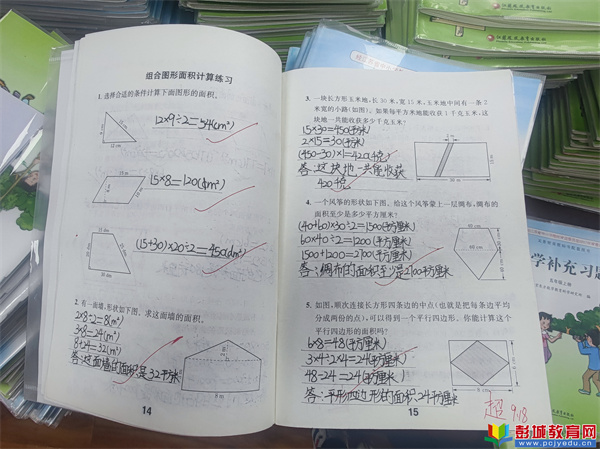 组合图形面积计算练习
1. 选择合适的条件计算下面图形的面积。
12×9÷2=54(cm²)
12 cm
15×8=120(dm²)
(15+30)×20÷2=450(dm²)
2. 有一面墙,形状如下图。求这面墙的面积。
2×8÷2=8(m²)
3×8=24(m²)
8+24=32(m²)
答:这面墙的面积是32平方米
8 m
14
3. 一块长方形玉米地,长30米,宽15米,玉米地中间有一条2
米宽的小路(如图)。如果每平方米地能收获1千克玉米,这
块地一共能收获多少千克玉米?
15×30=450(平方米)
2×15=30(平方米)
(450-30)×1=420(千克)
答:这块地一共能收获
420千克
30 m
4. 一个风筝的形状如下图。给这个风筝蒙上一层绸布,绸布的
面积至少是多少平方厘米?
(40+60)×30÷2=1500(平方厘米)
60×40÷2=1200(平方厘米)
1500+1200=2700(平方厘米)
答:绸布的面积至少是2700平方厘米
40 cm
60 cm
5. 如图,顺次连接长方形四条边的中点(也就是把每条边平均
分成两份的点),可以得到一个平行四边形。你能计算这个
平行四边形的面积吗?
6×8=48(平方厘米)
3×4÷2×4=24(平方厘米)
48-24=24(平方厘米)
答:平形四边形的面积24平方厘米
8 cm
15
超 9.18
学补充习题
彭城教育网
www.pcjyedu.cn